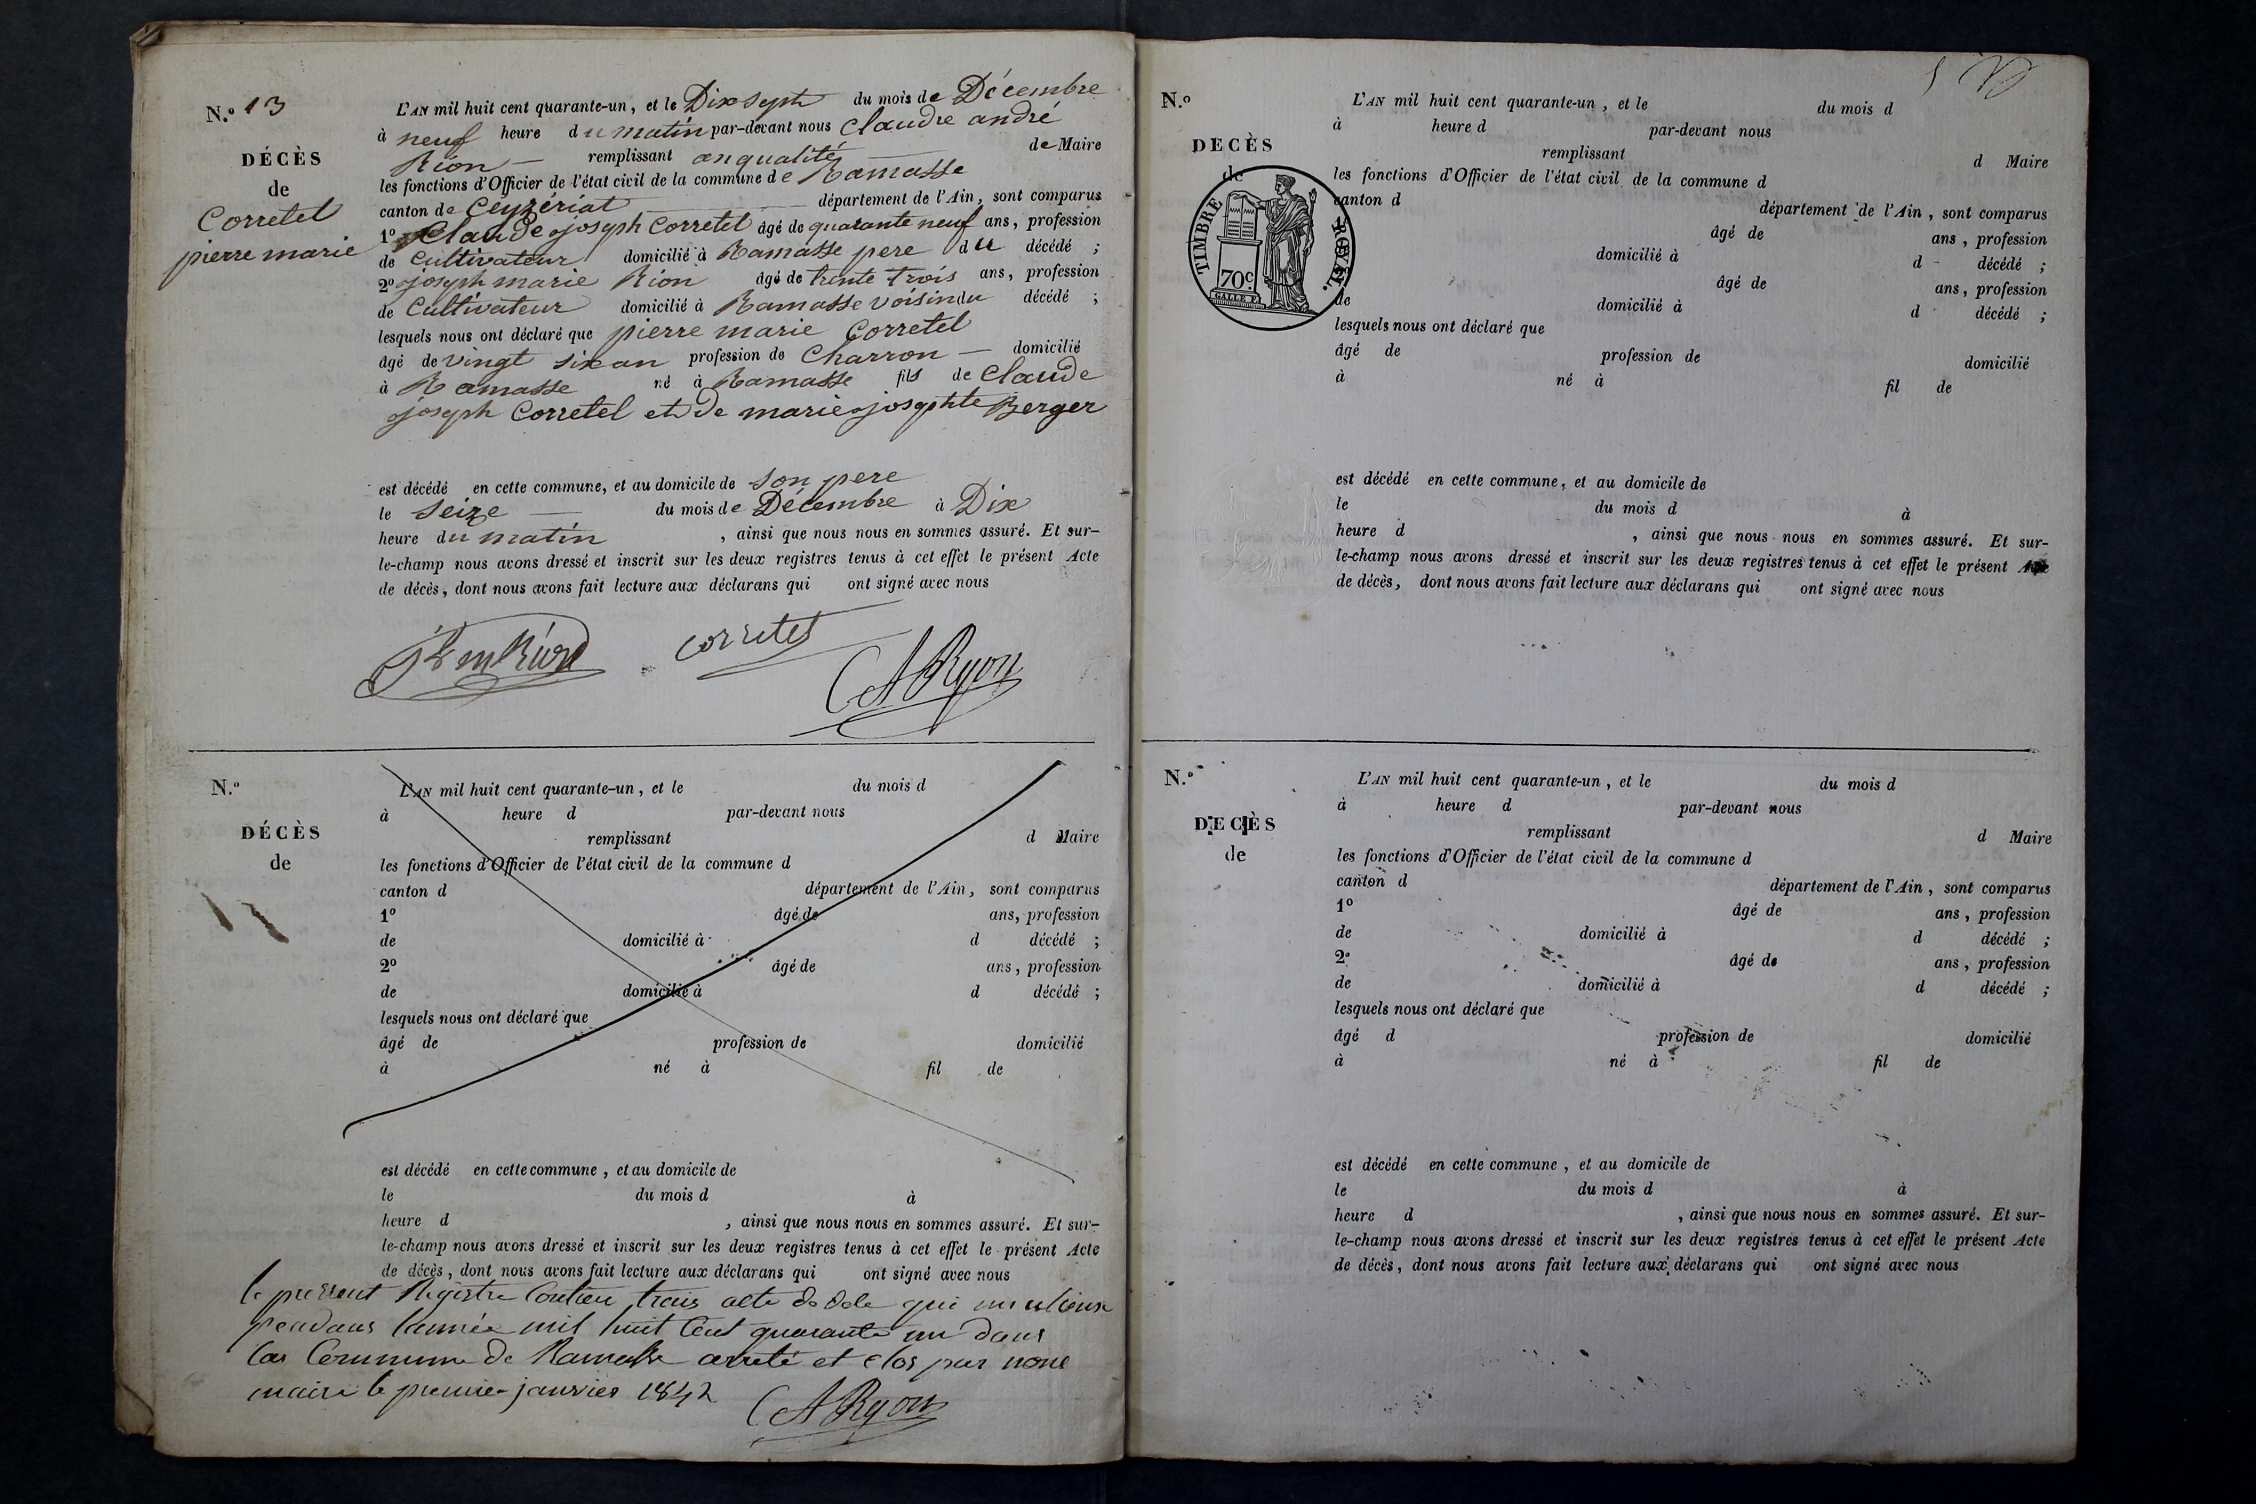 N.º 13
DÉCÈS
de
Corretel
pierre marie
L'AN mil huit cent quarante-un, et le Dix Sept du mois de Décembre
à neuf heure du matin par-devant nous Claude andré
Rion — remplissant en qualité de Maire
les fonctions d'Officier de l'état civil de la commune de Ramasse
canton de Ceyzériat — département de l'Ain, sont comparus
1º Claude joseph Corretel âgé de quarante neuf ans, profession
de Cultivateur domicilié à Ramasse pere du décédé ;
2º joseph marie Rion âgé de trente trois ans, profession
de Cultivateur domicilié à Ramasse voisin du décédé ;
lesquels nous ont déclaré que pierre marie Corretel
âgé de vingt six an profession de Charron — domicilié
à Ramasse né à Ramasse fils de Claude
joseph Corretel et de marie josephte Berger
est décédé en cette commune, et au domicile de son pere
le Seize — du mois de Décembre à Dix
heure du matin , ainsi que nous nous en sommes assuré. Et sur-
le-champ nous avons dressé et inscrit sur les deux registres tenus à cet effet le présent Acte
de décès, dont nous avons fait lecture aux déclarans qui ont signé avec nous
corretel
CARyon
N.º
DÉCÈS
de
L'AN mil huit cent quarante-un, et le du mois d
à heure d par-devant nous
remplissant d Maire
les fonctions d'Officier de l'état civil de la commune d
canton d département de l'Ain, sont comparus
1º âgé de ans, profession
de domicilié à d décédé ;
2º âgé de ans, profession
de domicilié à d décédé ;
lesquels nous ont déclaré que
âgé de profession de domicilié
à né à fil de
est décédé en cette commune, et au domicile de
le du mois d à
heure d , ainsi que nous nous en sommes assuré. Et sur-
le-champ nous avons dressé et inscrit sur les deux registres tenus à cet effet le présent Acte
de décès, dont nous avons fait lecture aux déclarans qui ont signé avec nous
le present Registre Contien trais acte de qui
pendans lannée mil huit Cent quarante un dans
la Commune de Ramasse arreté et clos par nous
maire le premier janvier 1842
CARyon
N.º
DECÈS
de
TIMBRE ROYAL.
70c.
L'AN mil huit cent quarante-un, et le du mois d
à heure d par-devant nous
remplissant d Maire
les fonctions d'Officier de l'état civil de la commune d
canton d département de l'Ain, sont comparus
âgé de ans, profession
domicilié à d décédé ;
âgé de ans, profession
de domicilié à d décédé ;
lesquels nous ont déclaré que
âgé de profession de domicilié
à né à fil de
est décédé en cette commune, et au domicile de
le du mois d à
heure d , ainsi que nous nous en sommes assuré. Et sur-
le-champ nous avons dressé et inscrit sur les deux registres tenus à cet effet le présent Acte
de décès, dont nous avons fait lecture aux déclarans qui ont signé avec nous
N.º
DECÈS
de
L'AN mil huit cent quarante-un, et le du mois d
à heure d par-devant nous
remplissant d Maire
les fonctions d'Officier de l'état civil de la commune d
canton d département de l'Ain, sont comparus
1º âgé de ans, profession
de domicilié à d décédé ;
2º âgé de ans, profession
de domicilié à d décédé ;
lesquels nous ont déclaré que
âgé d profession de domicilié
à né à fil de
est décédé en cette commune, et au domicile de
le du mois d à
heure d , ainsi que nous nous en sommes assuré. Et sur-
le-champ nous avons dressé et inscrit sur les deux registres tenus à cet effet le présent Acte
de décès, dont nous avons fait lecture aux déclarans qui ont signé avec nous